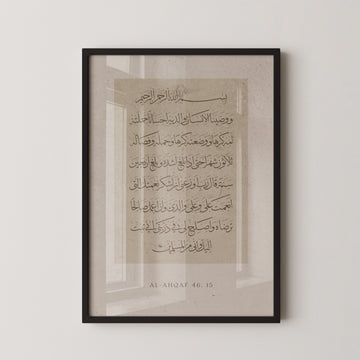 بسم الله الرحمن الرحيم
ووصينا الإنسان بوالديه إحسانا حملته
أمه كرها ووضعته كرها وحمله وفصاله
ثلاثون شهرا حتى إذا بلغ أشده وبلغ أربعين
سنة قال رب أوزعني أن أشكر نعمتك التي
أنعمت علي وعلى والدي وأن أعمل صالحا
ترضاه وأصلح لي في ذريتي إني تبت
إليك وإني من المسلمين
AL-AHQAF 46, 15